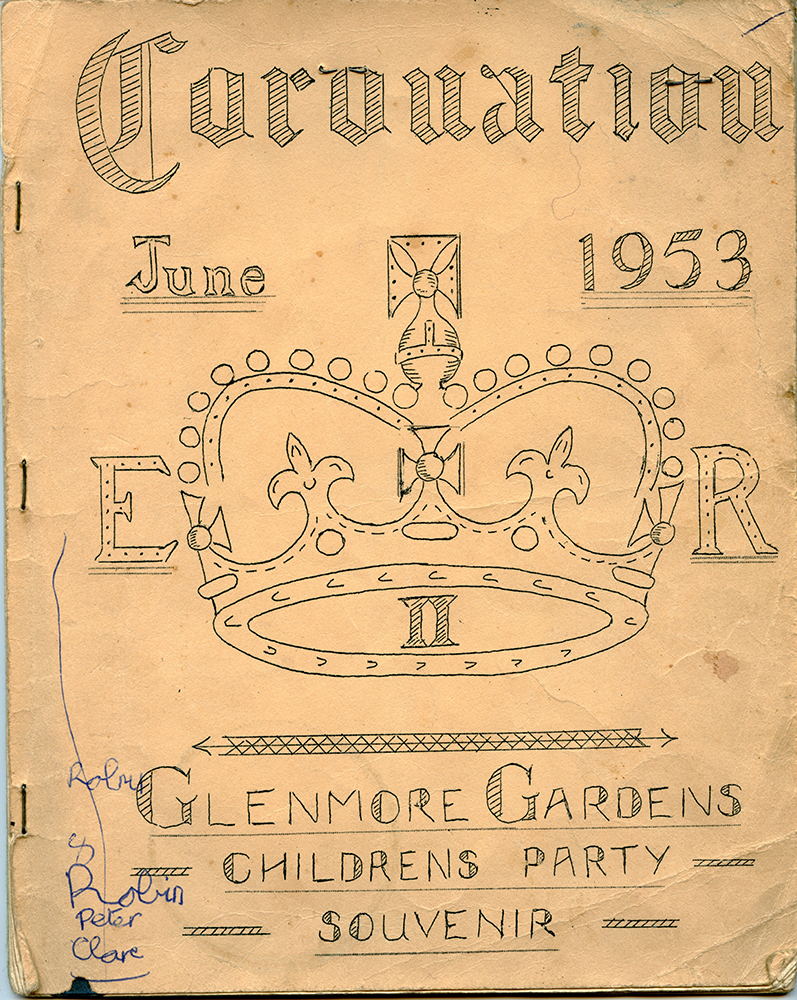 Coronation
June 1953
E R
II
GLENMORE GARDENS
CHILDRENS PARTY
SOUVENIR
Robin
Robin
Peter
Clare